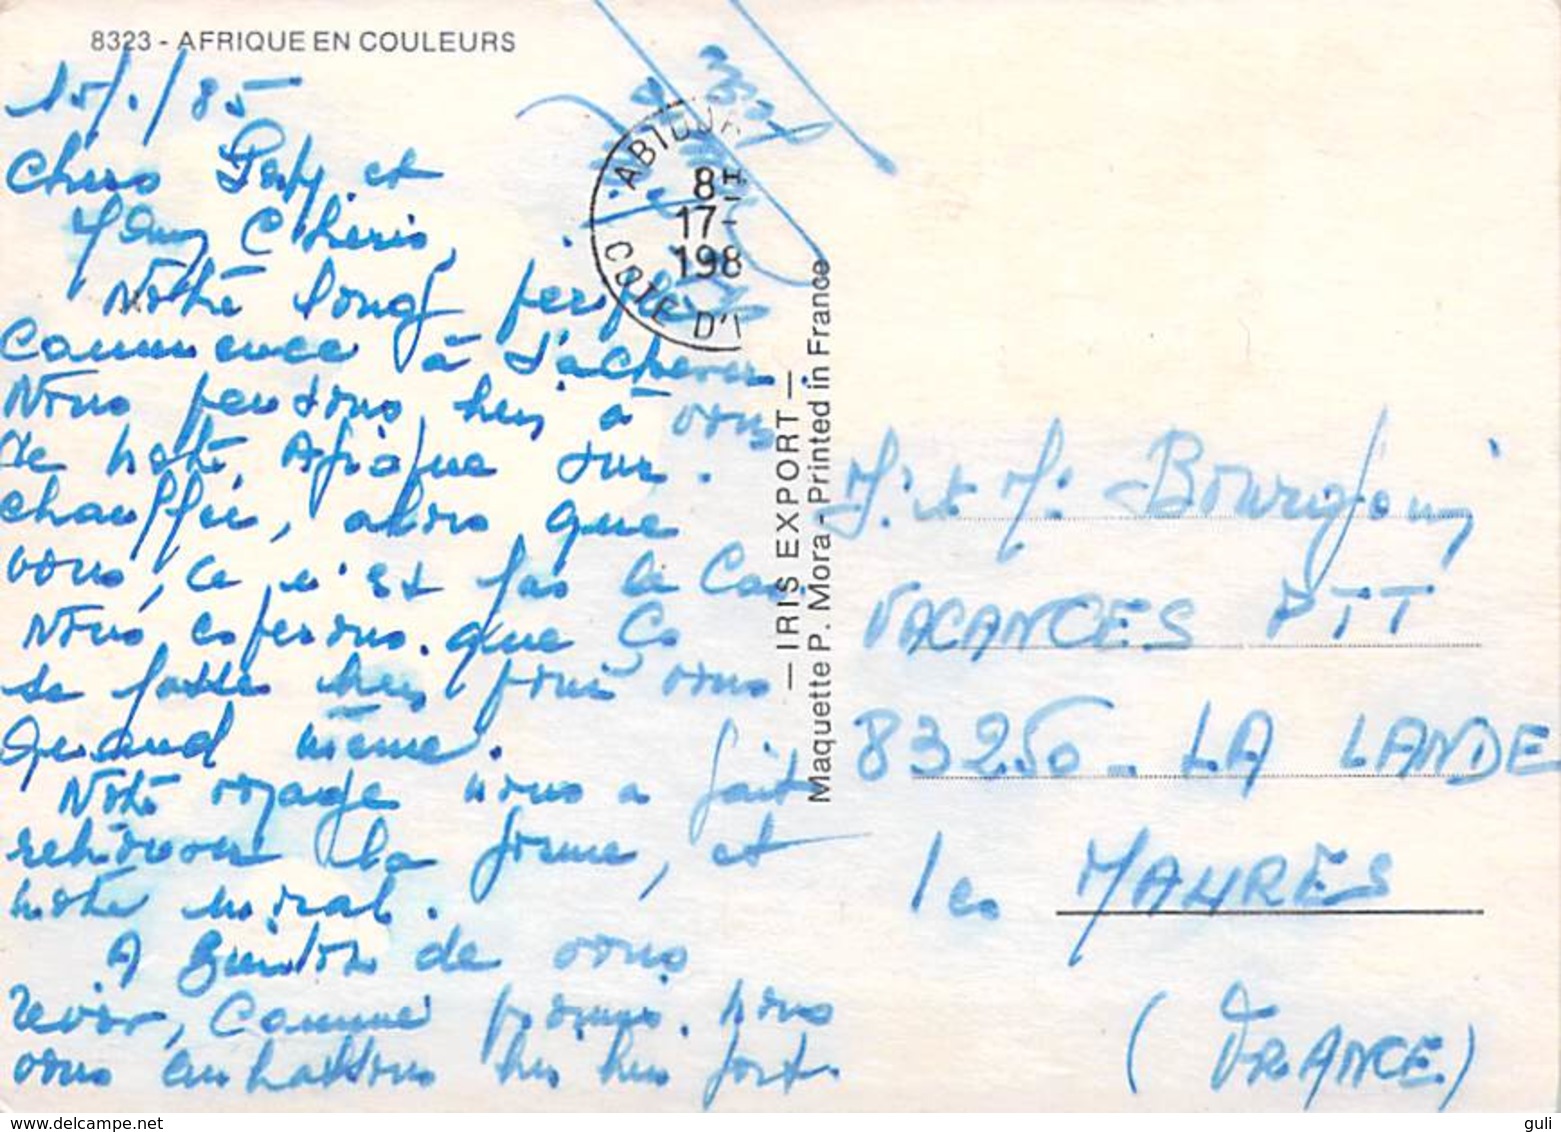 8323 - AFRIQUE EN COULEURS
15/./85
Chers Papy et
Mamy Chéris,
Notre long périple
commence à s'achever.
Nous pensons bien à vous
de notre Afrique sur-
chauffée, alors que
vous, ce n'est pas le cas.
Nous espérons que ça
se passe bien pour vous
quand même.
Notre voyage nous a fait
retrouver la forme, et
notre moral.
A bientôt de vous
revoir, comme promis. nous
vous embrassons bien bien fort.
ABIDJAN
8H
17-
198
COTE D'I
— IRIS EXPORT —
Maquette P. Mora - Printed in France
M. et M. Bourgoin
VACANCES PTT
83250 - LA LANDE
les MAURES
(FRANCE)
www.delcampe.net
guli